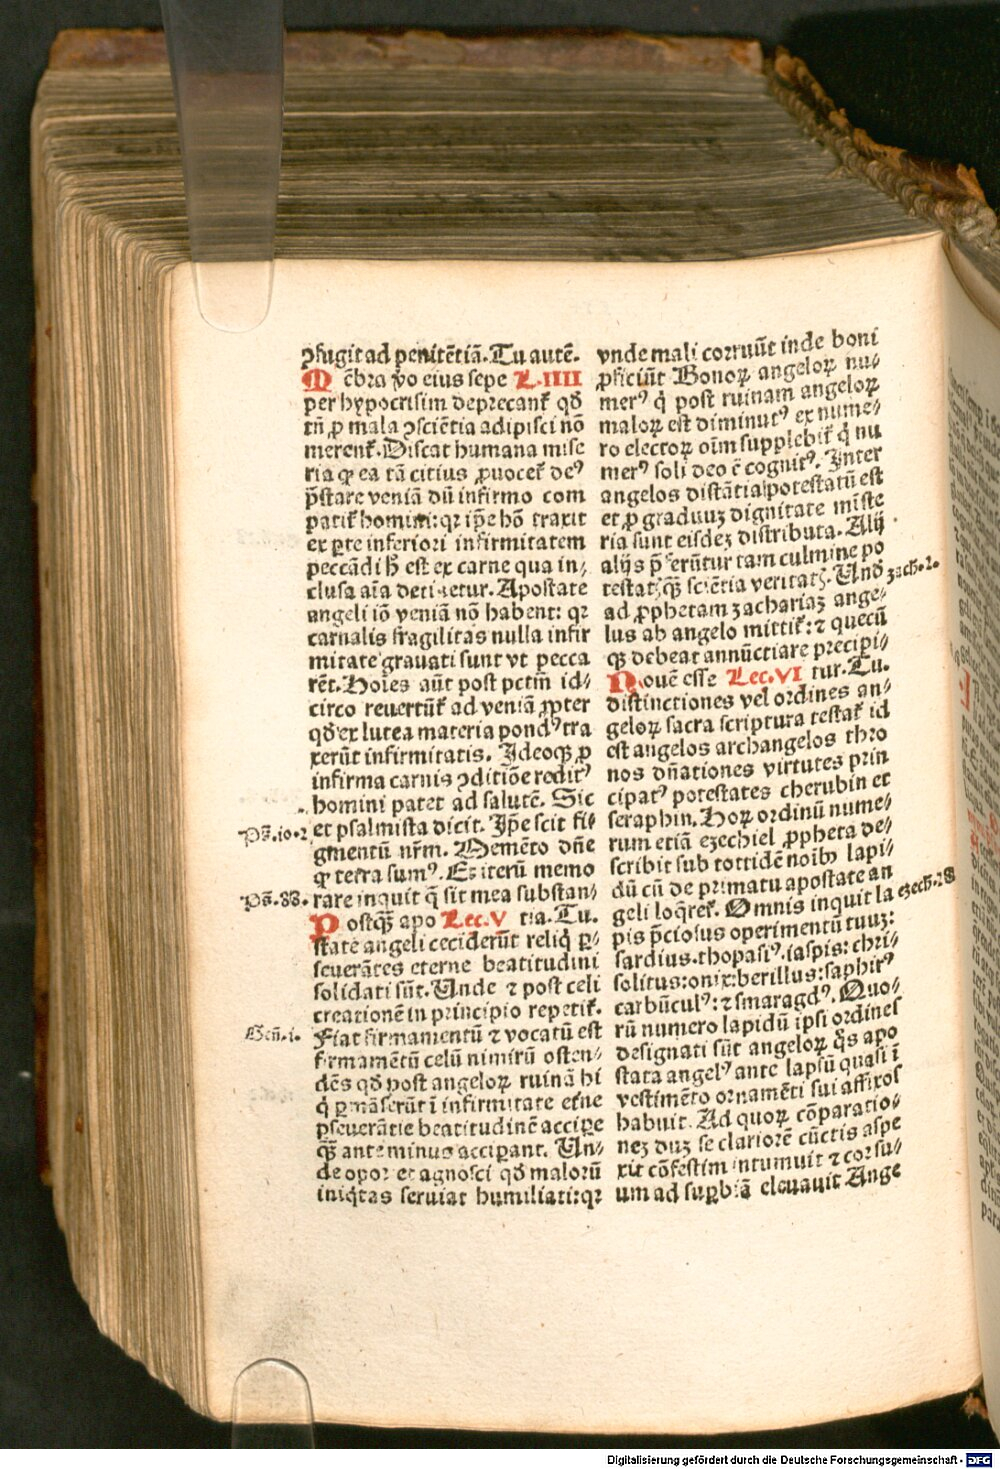 ꝯfugit ad penitētiā. Tu autē.
Mēbra ꝟo eius sepe L. IIII
per hypocrisim deprecant᷑ qd̄
tn̄ ꝓ mala ꝯsciētia adipisci nō
merent᷑. Discat humana mise
ria ꝙ ea tā citius ꝓuocet᷑ deꝰ
p̄stare veniā dū infirmo com
patit᷑ homini: qꝛ ip̄e hō traxit
ex ꝑte inferiori infirmitatem
peccādi h̄ est ex carne qua in⸗
clusa aīa detinetur. Apostate
angeli iō veniā nō habent: qꝛ
carnalis fragilitas nulla infir
mitate grauati sunt vt pecca
rēt. Hoīes aūt post pctm̄ id⸗
circo reuertūt᷑ ad veniā ꝓpter
qd̄ ex lutea materia pondꝰ tra
xerūt infirmitatis. Ideoqꝫ ꝓ
infirma carnis ꝯditiōe reditꝰ
homini patet ad salutē. Sic
Ps̄. 10.2 et psalmista dicit. Ip̄e scit fi⸗
gmentū nr̄m. Memēto dn̄e
ꝙ terra sumꝰ. Et iterū memo
Ps̄. 88. rare inquit q̄ sit mea substan⸗
Postqꝫ apo Lec. V tia. Tu.
state angeli ceciderūt reliq̄ ꝑ⸗
seuerātes eterne beatitudini
solidati sūt. Unde ⁊ post celi
creationē in principio repetit᷑.
Gen̄. i. Fiat firmamentū ⁊ vocatū est
firmamētū celū nimirū osten⸗
dēs qd̄ post angeloꝝ ruinā hi
q̄ ꝑmāserūt ī infirmitate et̄ne
ꝑseuerātie beatitudinē accipe
qꝫ ante minus accipant. Un⸗
de opoꝛ et agnosci qd̄ malorū
iniq̄tas seruiat humiliati: qꝛ
vnde mali corruūt inde boni
ꝓficiūt Bonoꝝ angeloꝝ nu⸗
merꝰ q̄ post ruinam angeloꝝ
maloꝝ est diminutꝰ ex nume⸗
ro electoꝝ oīm supplebit᷑ q̄ nu
merꝰ soli deo ē cognitꝰ. Inter
angelos distātia potestatū est
et ꝓ graduuꝫ dignitate miste
ria sunt eisdeꝫ distributa. Alij
alijs p̄ferūtur tam culmine po
testatꝭ qꝫ sciētia veritatꝭ. Und̄ zach. 2.
ad ꝓphetam zachariaꝫ ange⸗
lus ab angelo mittit᷑: ⁊ quecū
qꝫ debeat annūctiare precipi⸗
Nouē esse Lec. VI tur. Tu.
distinctiones vel ordines an⸗
geloꝝ sacra scriptura testat᷑ id
est angelos archangelos thro
nos dn̄ationes virtutes prin
cipatꝰ potestates cherubin et
seraphin. Hoꝝ ordinū nume⸗
rum etiā ezechiel ꝓpheta de⸗
scribit sub tottidē noībꝫ lapi⸗
dū cū de primatu apostate an
geli loq̄ret᷑. Omnis inquit la ezech. 28
pis p̄ciosus operimentū tuuꝫ:
sardius. thopasiꝰ. iaspis: chri⸗
solitus: onix: berillus: saphirꝰ
carbūculꝰ: ⁊ smaragdꝰ. Quo⸗
rū numero lapidū ipsi ordines
designati sūt angeloꝝ q̄s apo
stata angelꝰ ante lapsū quasi ī
vestimēto ornamēti sui affixos
habuit. Ad quoꝝ cōparatio⸗
neꝫ duꝫ se clariorē cūctis aspe
xit cōfestim intumuit ⁊ cor su⸗
um ad suꝑbiā eleuauit Ange
Digitalisierung gefördert durch die Deutsche Forschungsgemeinschaft - DFG